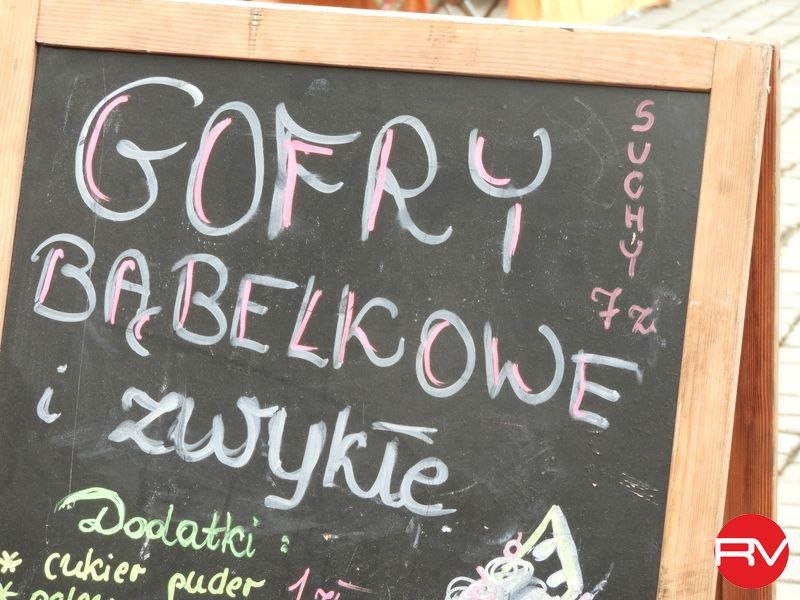 GOFRY
BĄBELKOWE
i zwykłe
SUCHY
7 zł
Dodatki:
* cukier puder 1 zł
*
RV